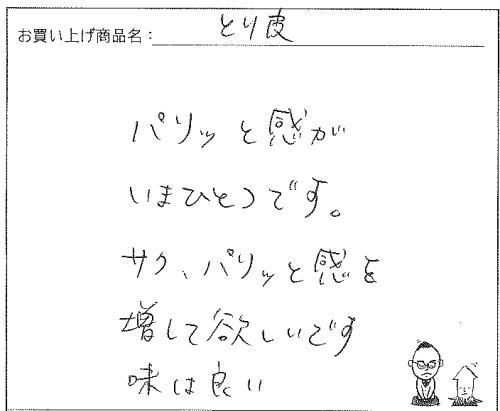 お買い上げ商品名：とり皮
パリッと感が
いまひとつです。
サク、パリッと感を
増して欲しいです
味は良い